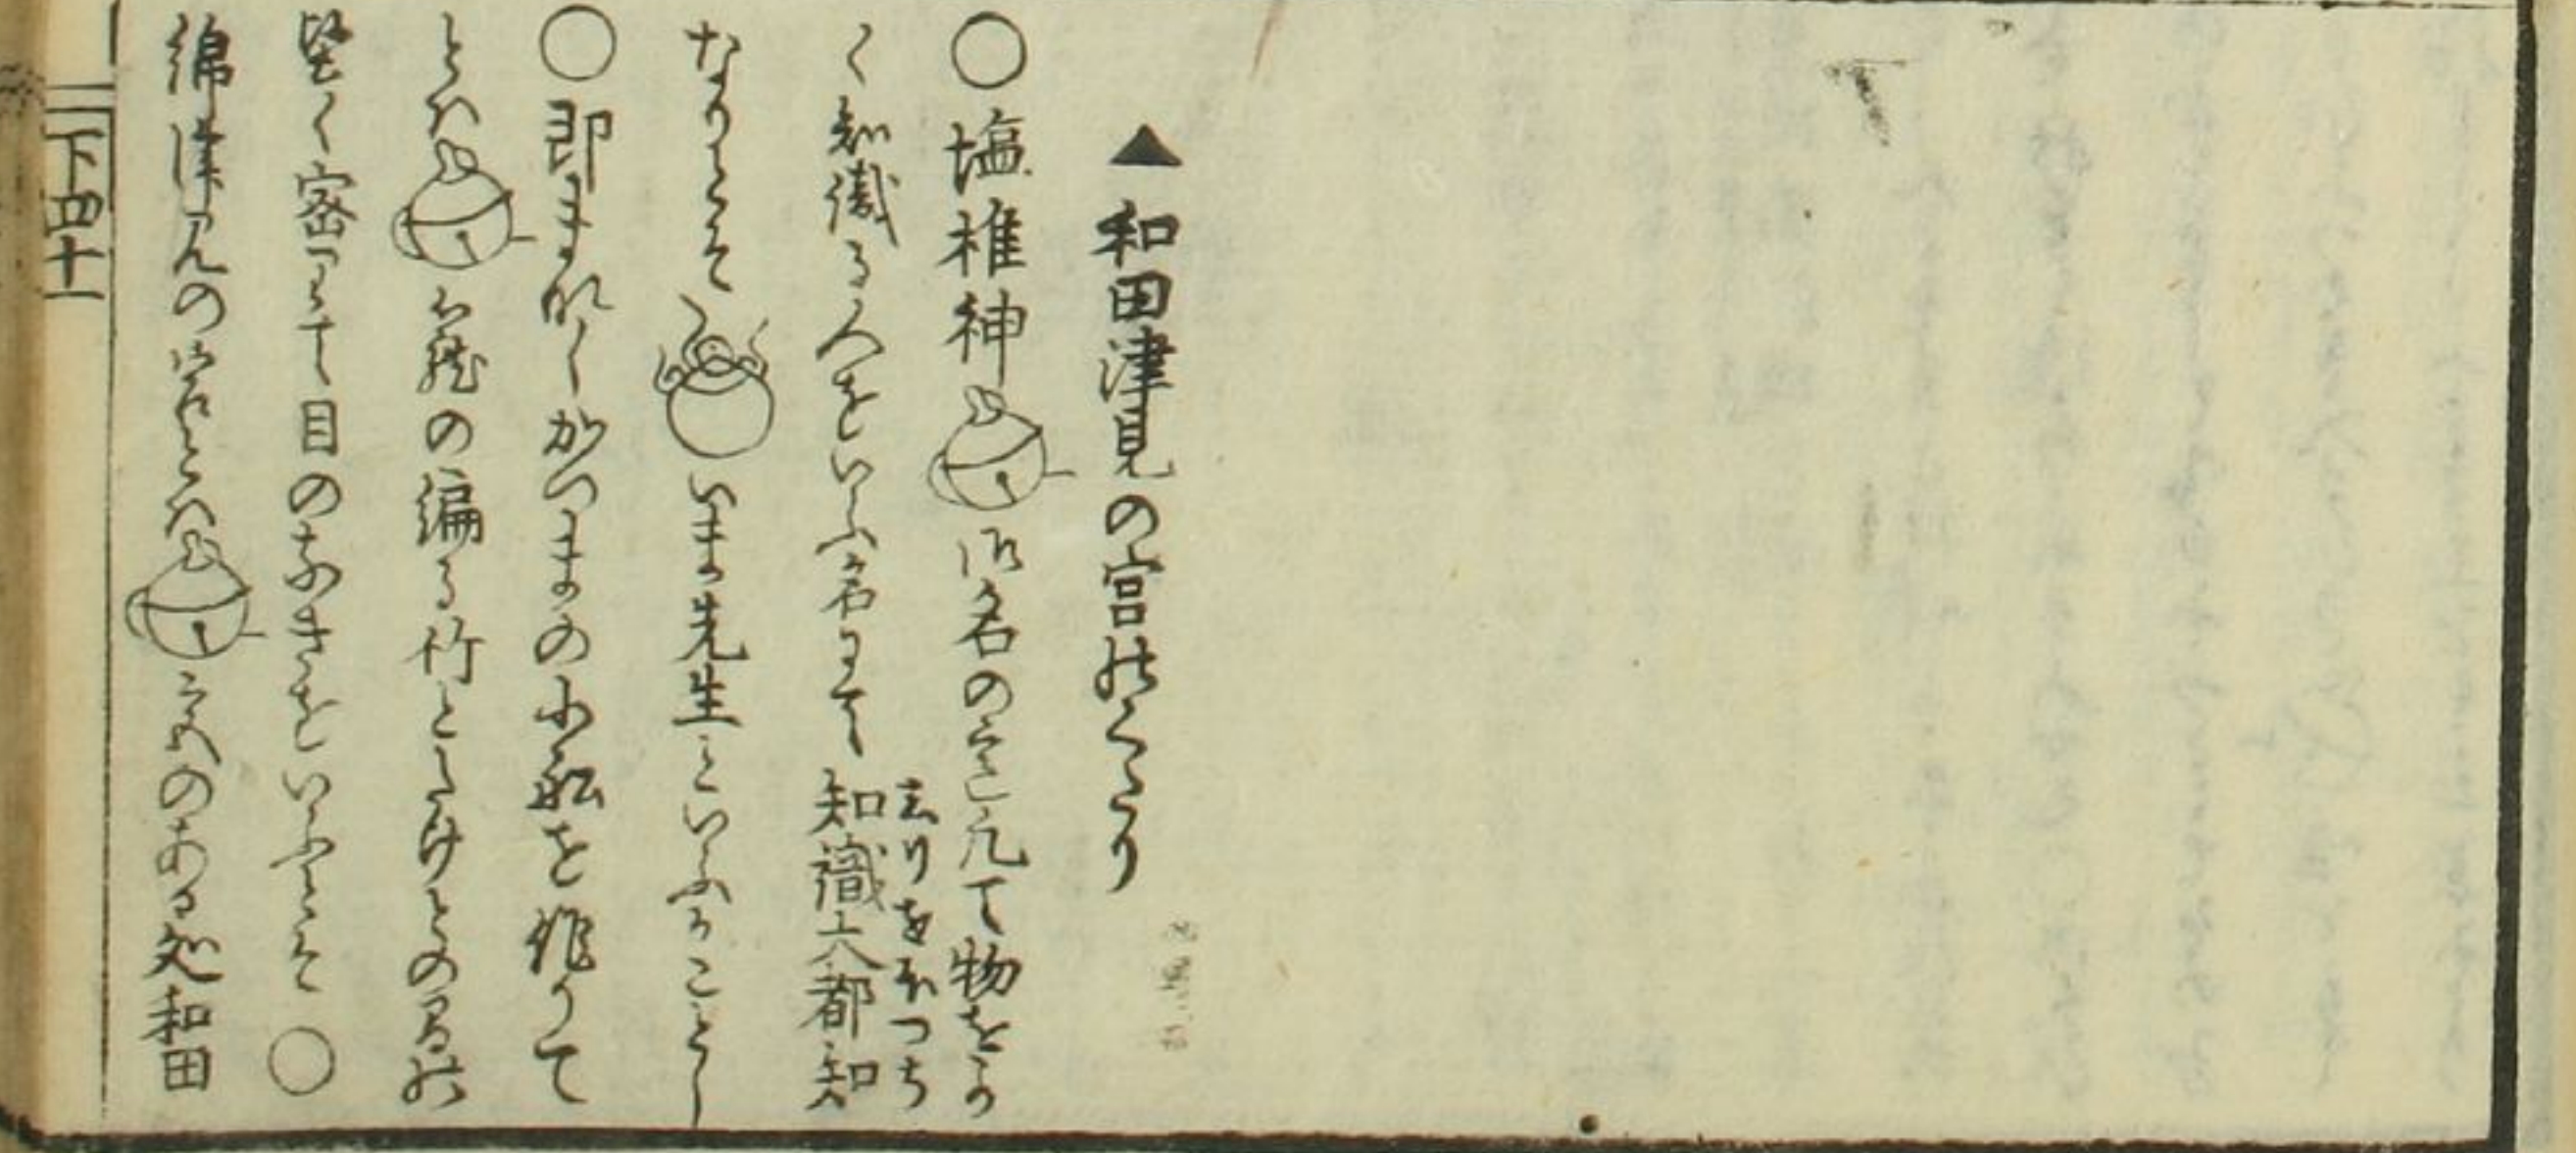 ▲和田津見の宮のくだり
○塩椎神 御名のこゝろ凡て物をよ
く知識る人をいふ名にて 知識大都知
しりをほつち
なりとぞ いま先生といふがことし
○即まなしかつまの小船を作りて
とハ 籠の編る竹とたけとのあひの
堅く密りて目のなきをいふとぞ ○
綿津見の宮とハ 海のある処和田
下四十一